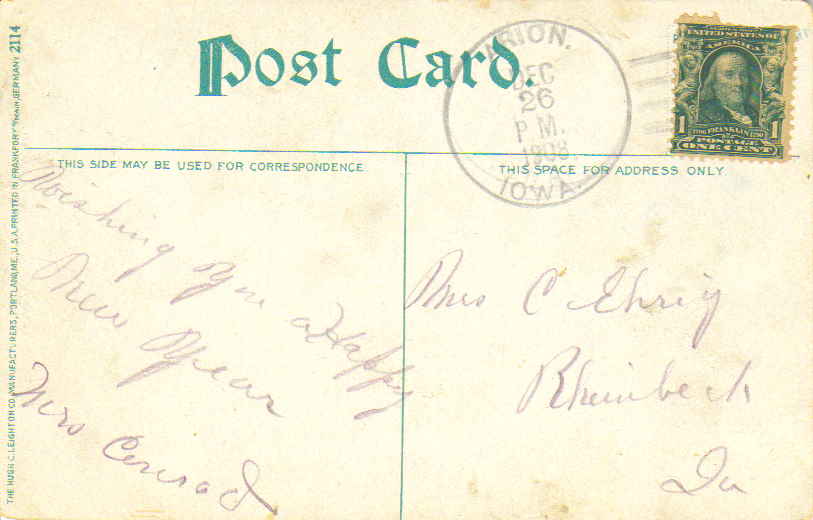 Post Card.
MARION.
DEC
26
P M.
1908.
IOWA.
UNITED STATES OF
AMERICA
1706 FRANKLIN 1790
1 1
POSTAGE
ONE CENT
THIS SIDE MAY BE USED FOR CORRESPONDENCE
THIS SPACE FOR ADDRESS ONLY
Wishing you a Happy
New Year
Mrs Conrad
Mrs C Ehrig
Rheinbeck
Ia
THE HUGH C. LEIGHTON CO., MANUFACTURERS, PORTLAND, ME., U.S.A. PRINTED IN FRANKFORT MAIN, GERMANY 2114